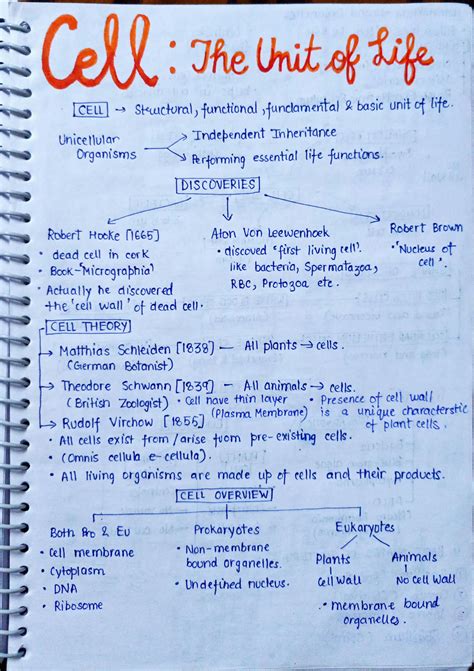 Cell : The Unit of Life
CELL → Structural, functional, fundamental & basic unit of life.
Unicellular Organisms
Independent Inheritance
Performing essential life functions.
DISCOVERIES
Robert Hooke [1665]
• dead cell in cork
• Book - 'Micrographia'
• Actually he discovered
the 'cell wall' of dead cell.
Aton Von Leewenhoek
• discoved 'first living cell'.
like bacteria, Spermatazoa,
RBC, Protozoa etc.
Robert Brown
• 'Nucleus of
cell'.
CELL THEORY
→ Matthias Schleiden [1838] — All plants → cells.
(German Botanist)
→ Theodore Schwann [1839] — All animals → cells.
(British Zoologist) • Cell have thin layer • Presence of cell wall
(Plasma Membrane) is a unique characterstic
of plant cells.
→ Rudolf Virchow [1855]
• All cells exist from/arise from pre-existing cells.
• (Omnis cellula e-cellula).
• All living organisms are made up of cells and their products.
CELL OVERVIEW
Both Pro & Eu
• Cell membrane
• Cytoplasm
• DNA
• Ribosome
Prokaryotes
• Non-membrane
bound organelles.
• Undefined nucleus.
Eukaryotes
Plants Animals
Cell Wall No Cell Wall
• membrane bound
organelles.